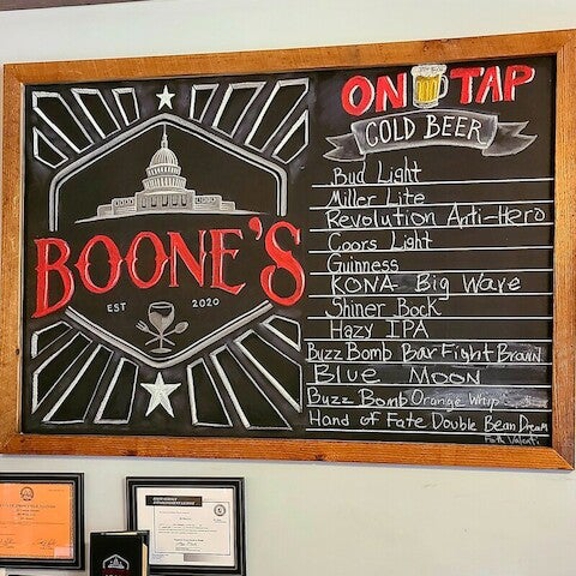 ON TAP
COLD BEER
Bud Light
Miller Lite
Revolution Anti-Hero
Coors Light
Guinness
KONA Big Wave
Shiner Bock
Hazy IPA
Buzz Bomb Bar Fight Brown
Blue Moon
Buzz Bomb Orange Whip
Hand of Fate Double Bean Dream
BOONE'S
EST 2020